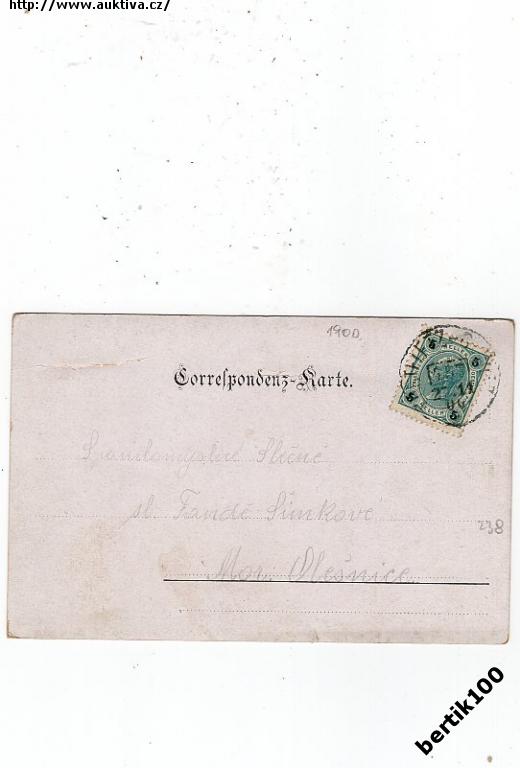 http://www.auktiva.cz/
1900
Correspondenz-Karte.
5 5
5 5
Slečně
sl. Fandě Šimkové
238
Mor. Olešnice
bertik100